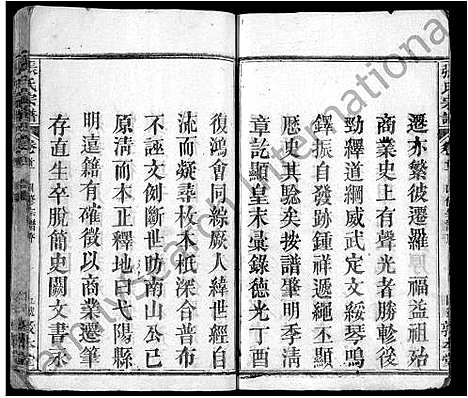 遷亦繁彼遷羅 福益祖始
商業史上有聲光者勝軫後
勁釋道綱威武定文綏琴鳴
鐸振自發跡鍾祥遞繩丕顯
歷史其駿矣按譜肇明季清
章訖興皇末彙錄德光丁酉
復鴻會同綜厥人緯世經自
流而凝尋枚木祇深合普布
不誣文例斷世助南山公已
原清而本正釋地曰弋陽縣
明遠籍有徵以商業遷筆
存直生卒脫簡史闕文書示
張氏宗譜 卷首
敦本堂
FamilySearch International